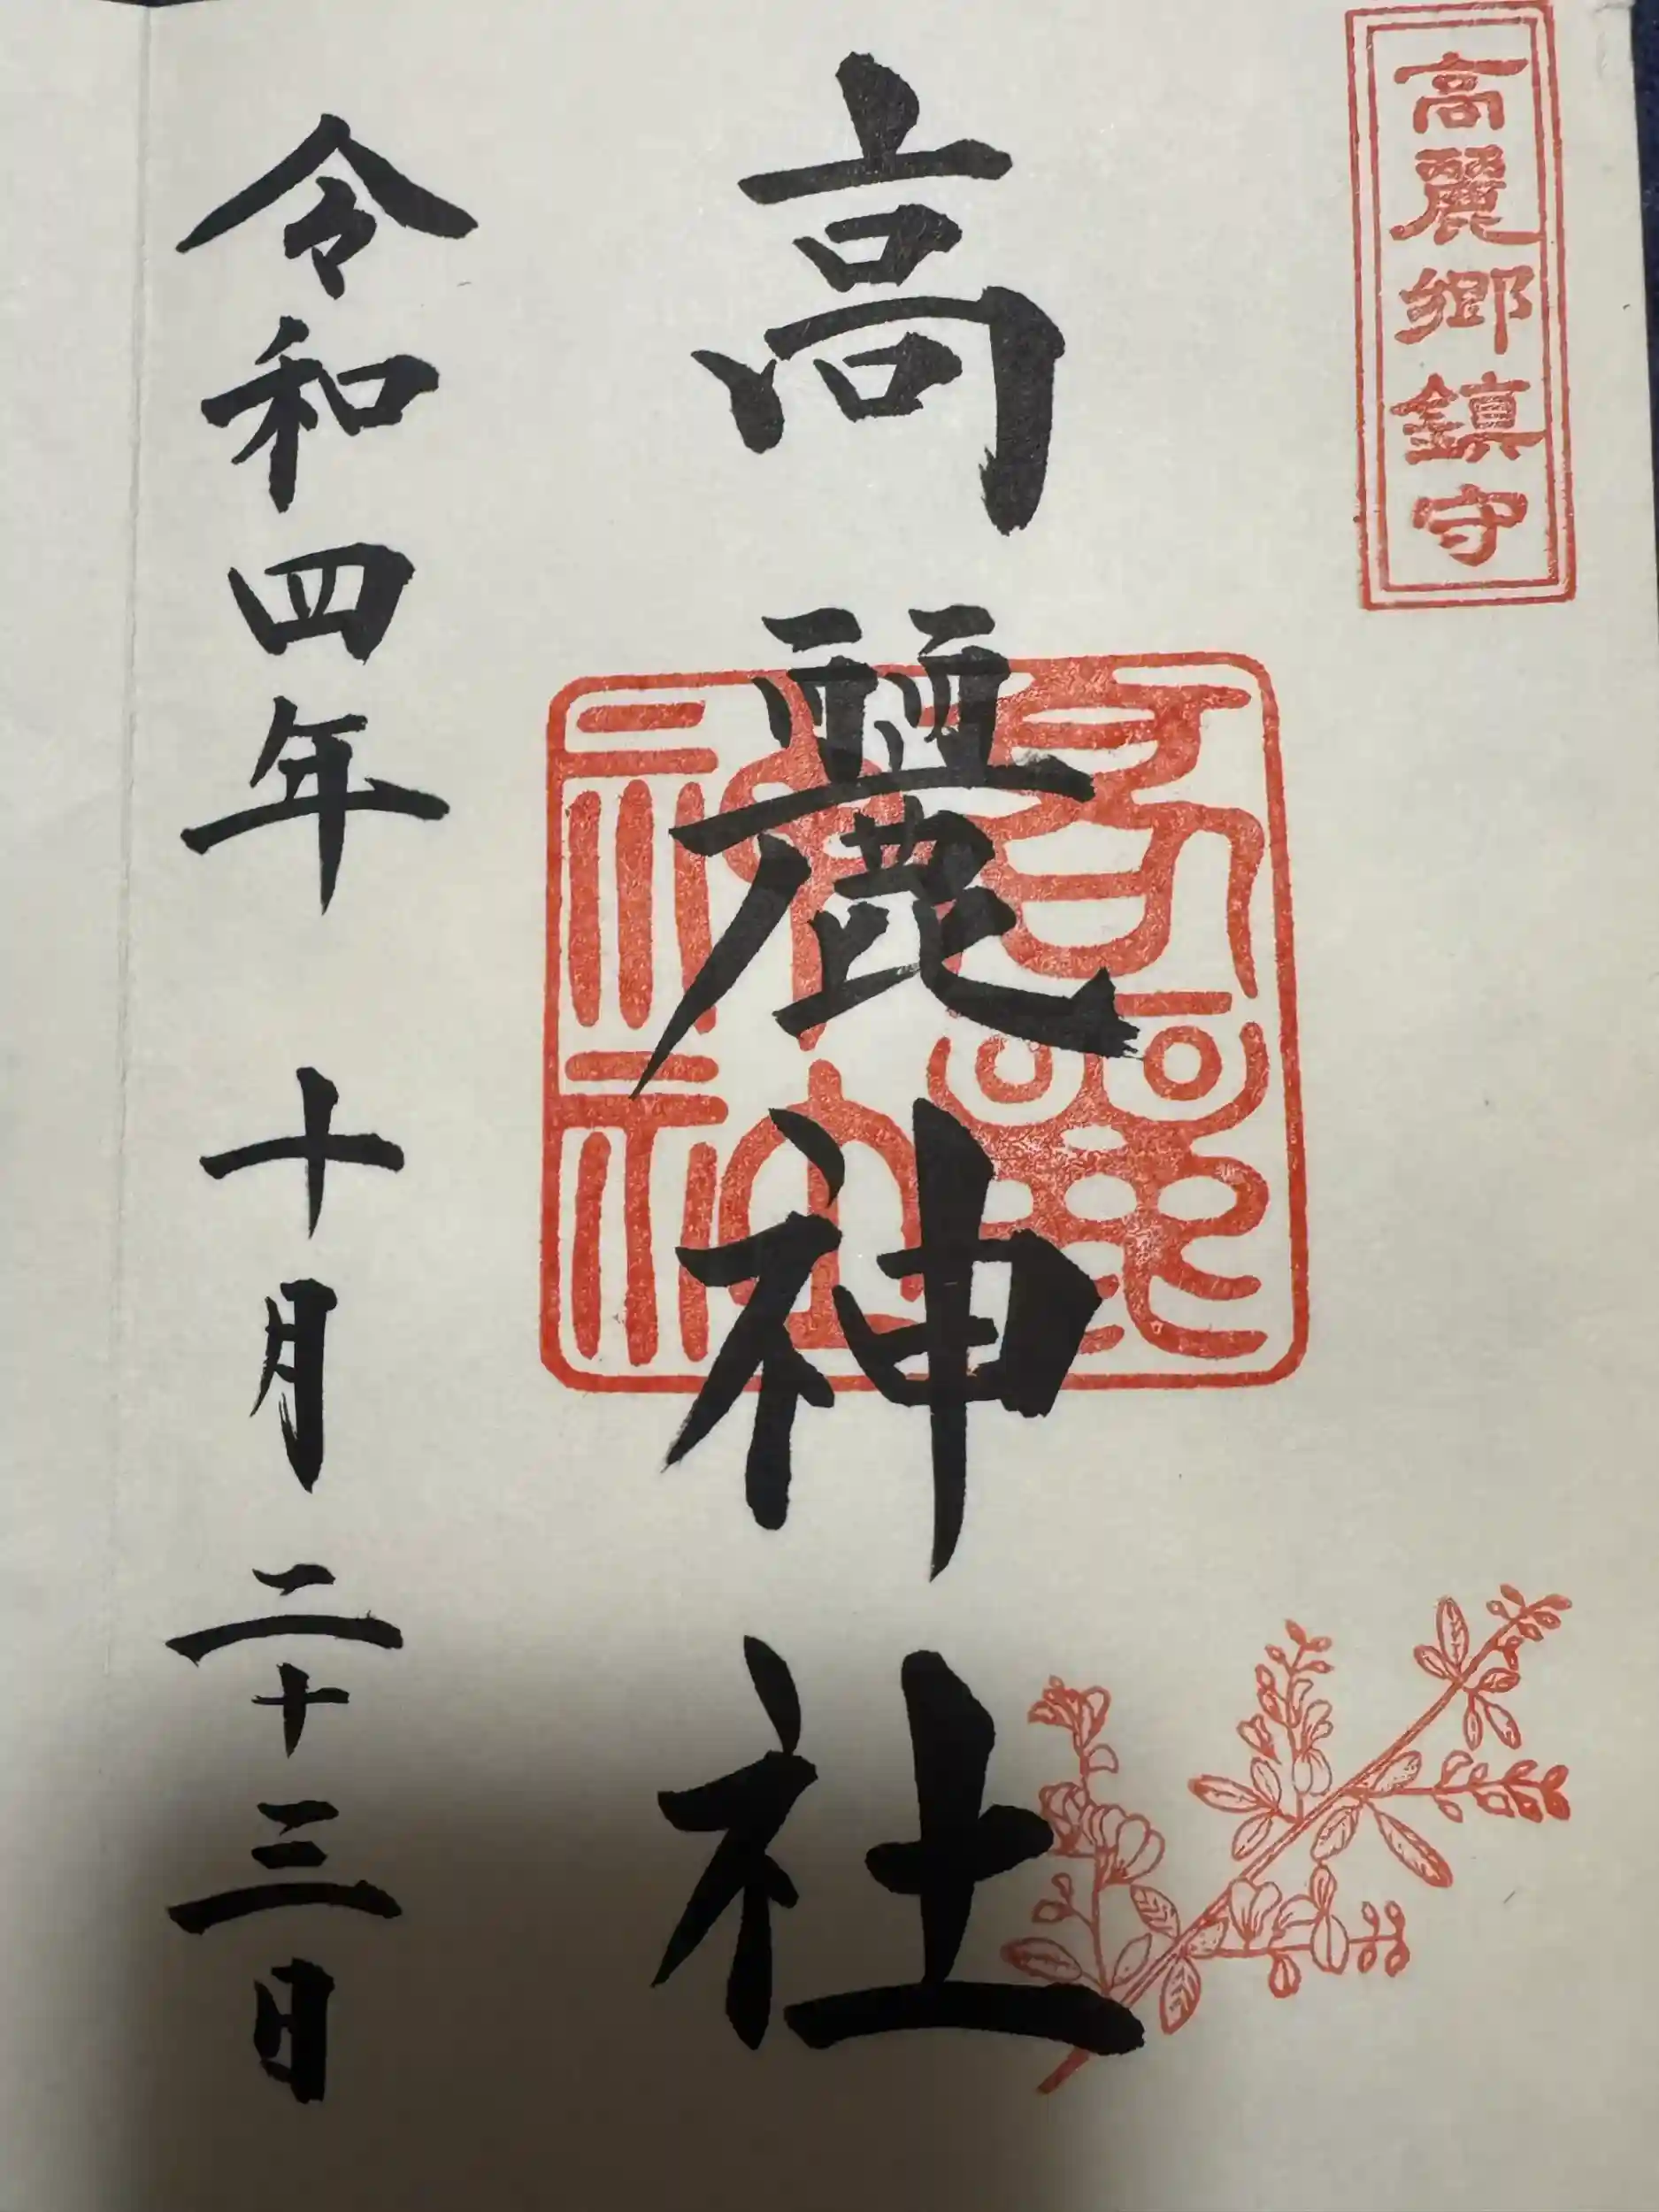 高麗郷鎮守
高麗神社
令和四年 十月 二十三日